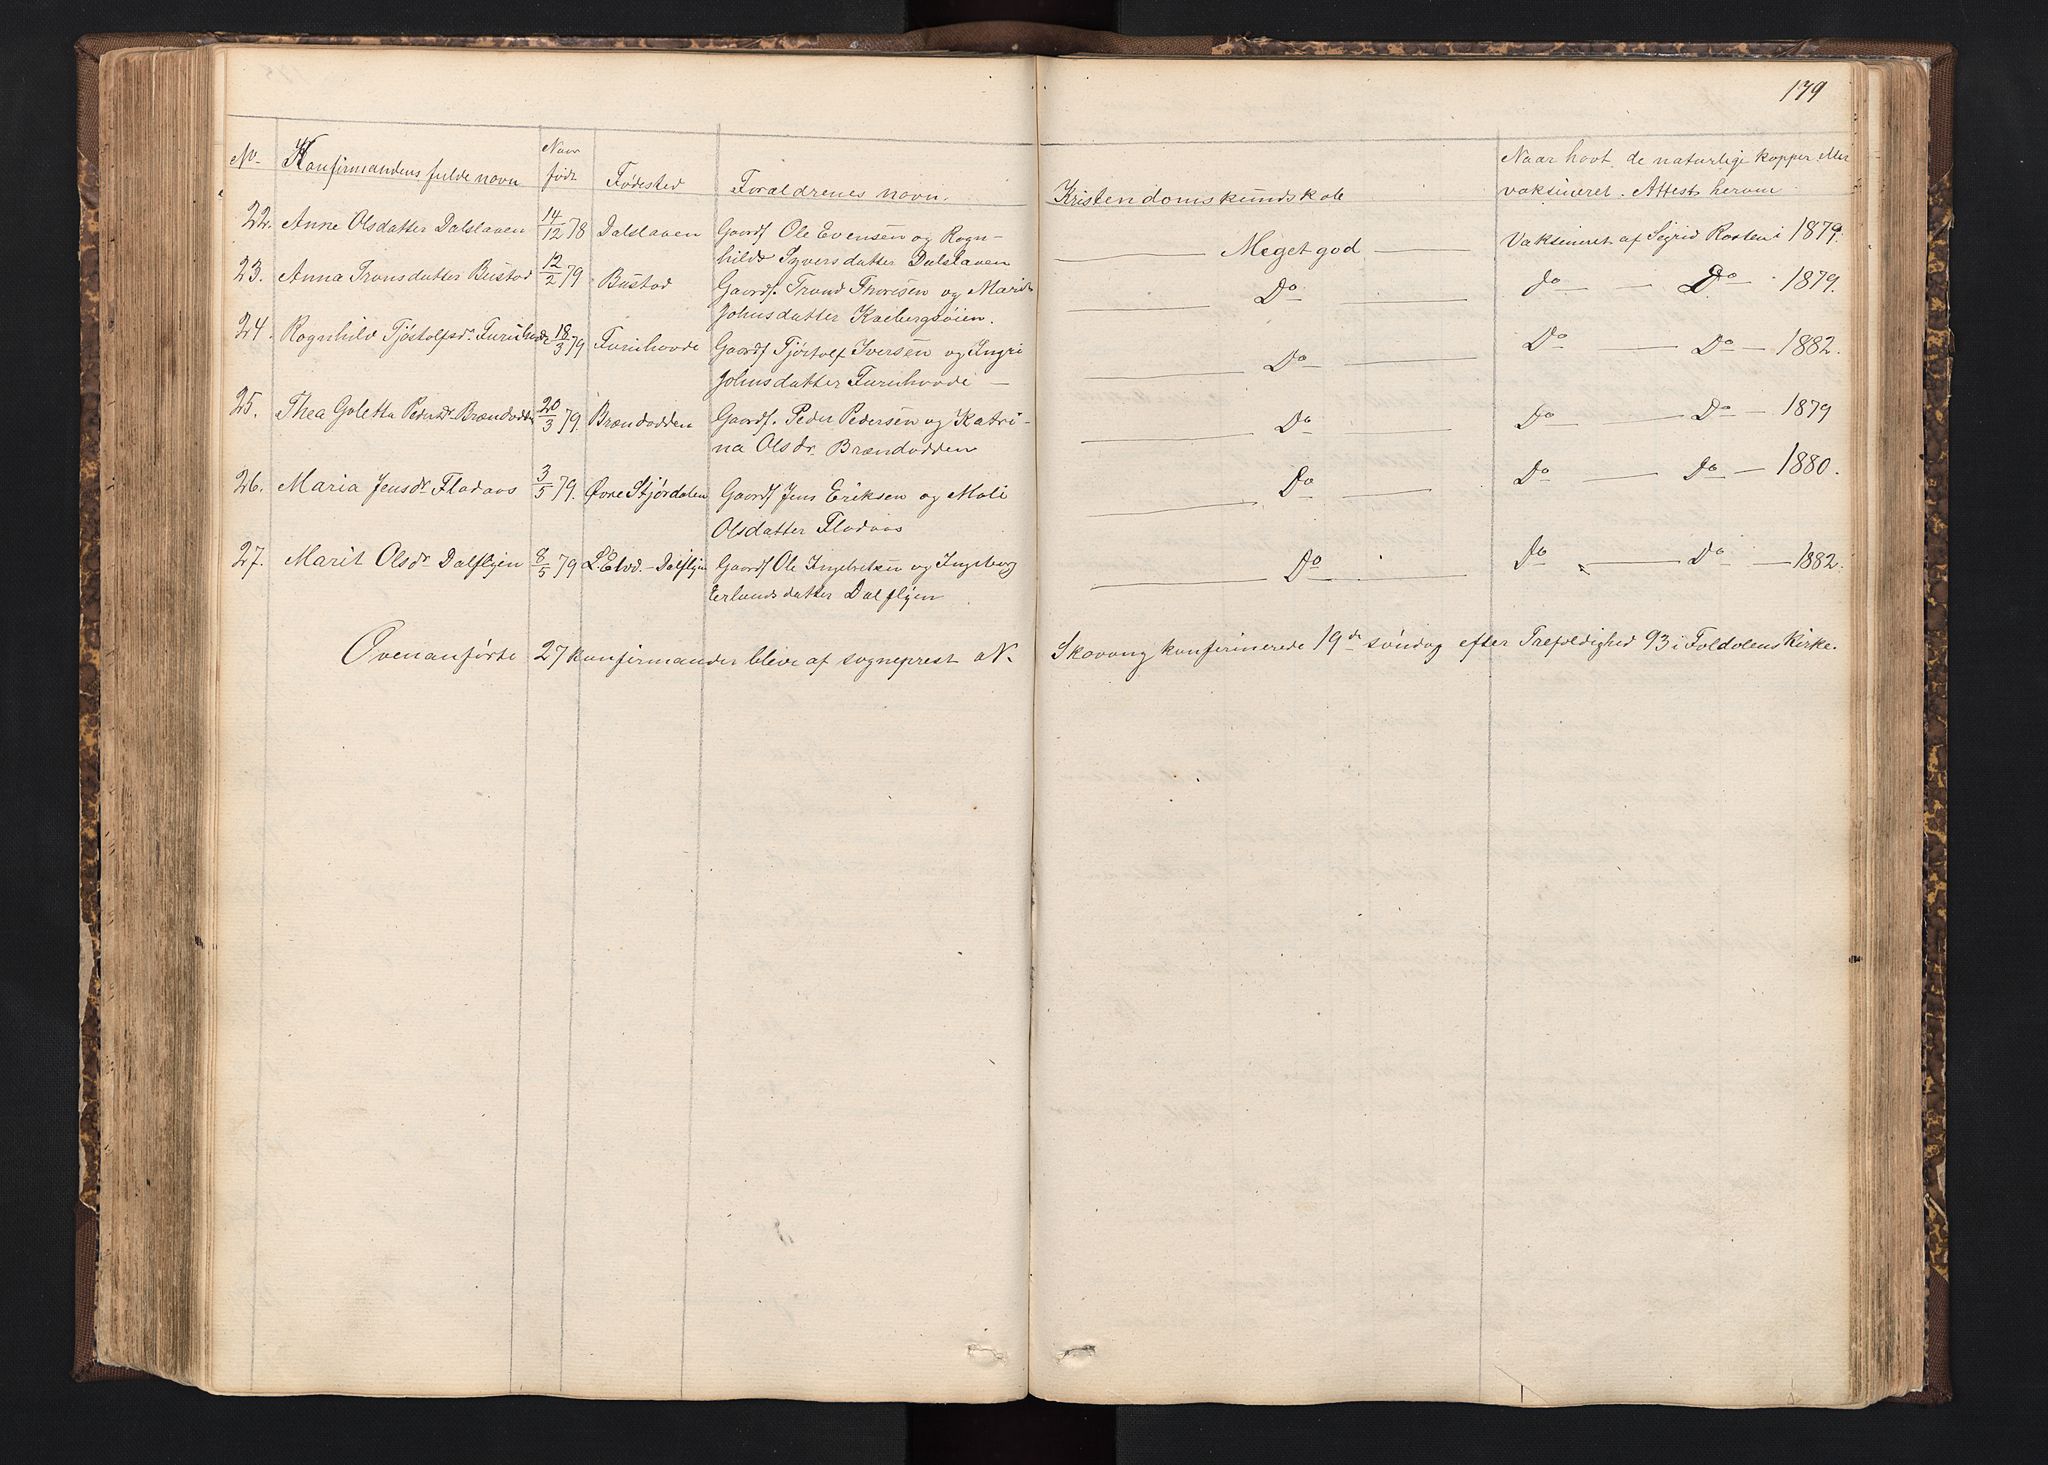 179
No. Konfirmandens fulde navn Naar født Fødested Forældrenes navn. Kristendomskundskab Naar havt de naturlige kopper eller
vaksineret. Attest herom
22. Anne Olsdatter Dalslaaen 14/12 78 Dalslaaen Gaardf Ole Evensen og Rogn- Meget god Vaksineret af Sigrid Rosten i 1879.
hild Syversdatter Dalslaaen
23. Anna Tronsdatter Bustad 12/2 79 Bustad Gaardf. Trond Thoresen og Marit Do do Do 1879.
Johnsdatter Kaebergsøien.
24. Rognhild Tjøstolfsdr Furuhovde 18/3 79 Furuhovde Gaardf Tjøstolf Iversen og Ingri Do Do Do 1882.
Johnsdatter Furuhovde
25. Thea Goletta Pedersdr Brændodden 20/3 79. Brændodden Gaardf. Peder Pedersen og Katri- Do Do Do 1879
na Olsdr. Brændodden
26. Maria Jensdr. Fladaas 3/5 79. Øvre Stjørdalen Gaardf Jens Eriksen og Mali Do Do Do 1880.
Olsdatter Fladaas
27. Marit Olsdr Dalflyen 8/5 79 L. Elvd. - Dalflyen Gaardf Ole Ingebretsen og Ingeborg Do Do Do 1882.
Erlandsdatter Dalflyen
Ovenanførte 27 konfirmander bleve af sogneprest N. Skavang konfirmerede 19de søndag efter Trefoldighed 93 i Foldalens Kirke.